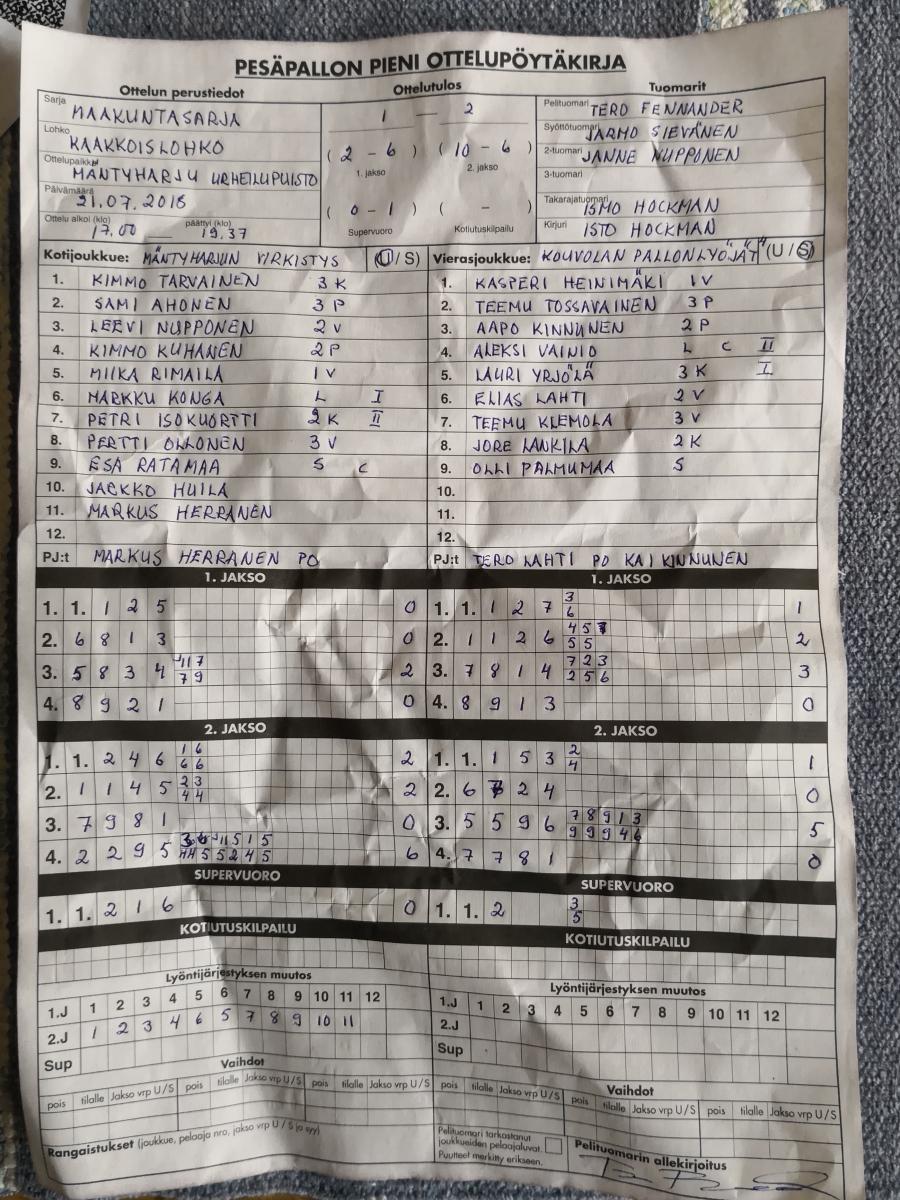 PESÄPALLON PIENI OTTELUPÖYTÄKIRJA
Ottelun perustiedot Ottelutulos Tuomarit
Sarja MAAKUNTASARJA 1 — 2 Pelituomari TERO FENNANDER
Lohko KAAKKOISLOHKO Syöttötuomari JARMO SIEVÄNEN
Ottelupaikka MÄNTYHARJU URHEILUPUISTO (2 - 6) (10 - 6) 2-tuomari JANNE NUPPONEN
1. jakso 2. jakso 3-tuomari
Päivämäärä 21.07.2018 (0 - 1) ( - ) Takarajatuomari ISMO HOCKMAN
Ottelu alkoi (klo) 17.00 päättyi (klo) 19.37 Supervuoro Kotiutuskilpailu Kirjuri ISTO HOCKMAN
Kotijoukkue: MÄNTYHARJUN VIRKISTYS (U/S) Vierasjoukkue: KOUVOLAN PALLONLYÖJÄT (U/S)
1. KIMMO TARVAINEN 3 K 1. KASPERI HEINIMÄKI 1 V
2. SAMI AHONEN 3 P 2. TEEMU TOSSAVAINEN 3 P
3. LEEVI NUPPONEN 2 V 3. AAPO KINNUNEN 2 P
4. KIMMO KUHANEN 2 P 4. ALEKSI VAINIO L C II
5. MIIKA RIMAILA 1 V 5. LAURI YRJÖLÄ 3 K I
6. MARKKU KONGA L I 6. ELIAS LAHTI 2 V
7. PETRI ISOKUORTTI 2 K II 7. TEEMU KLEMOLA 3 V
8. PERTTI OLLONEN 3 V 8. JORE LANKILA 2 K
9. ESA RATAMAA S C 9. OLLI PALMUMAA S
10. JACKKO HUILA 10.
11. MARKUS HERRANEN 11.
12. 12.
PJ:t MARKUS HERRANEN PO PJ:t TERO LAHTI PO KAI KINNUNEN
1. JAKSO 1. JAKSO
1. 1. 1 2 5 0 1. 1. 1 2 7 3 6 1
2. 6 8 1 3 0 2. 1 1 2 6 4 5 5 5 2
3. 5 8 3 4 11 7 7 9 2 3. 7 8 1 4 7 2 3 2 5 6 3
4. 8 9 2 1 0 4. 8 9 1 3 0
2. JAKSO 2. JAKSO
1. 1. 2 4 6 1 6 6 6 2 1. 1. 1 5 3 2 4 1
2. 1 1 4 5 2 3 4 4 2 2. 6 2 4 0
3. 7 9 8 1 0 3. 5 5 9 6 7 8 9 1 3 9 9 9 4 6 5
4. 2 2 9 5 11 5 1 5 5 5 2 4 5 6 4. 7 7 8 1 0
SUPERVUORO SUPERVUORO
1. 1. 2 1 6 0 1. 1. 2 3 5
KOTIUTUSKILPAILU KOTIUTUSKILPAILU
Lyöntijärjestyksen muutos Lyöntijärjestyksen muutos
1.J 1 2 3 4 5 6 7 8 9 10 11 12 1.J 1 2 3 4 5 6 7 8 9 10 11 12
2.J 1 2 3 4 6 5 7 8 9 10 11 2.J
Sup Sup
Vaihdot Vaihdot
pois tilalle Jakso vrp U/S pois tilalle Jakso vrp U/S pois tilalle Jakso vrp U/S pois tilalle Jakso vrp U/S pois tilalle Jakso vrp U/S pois tilalle Jakso vrp U/S
Rangaistukset (joukkue, pelaaja nro, jakso vrp U / S ja syy) Pelituomari tarkastanut joukkueiden pelaajaluvat. Puutteet merkitty erikseen. Pelituomarin allekirjoitus